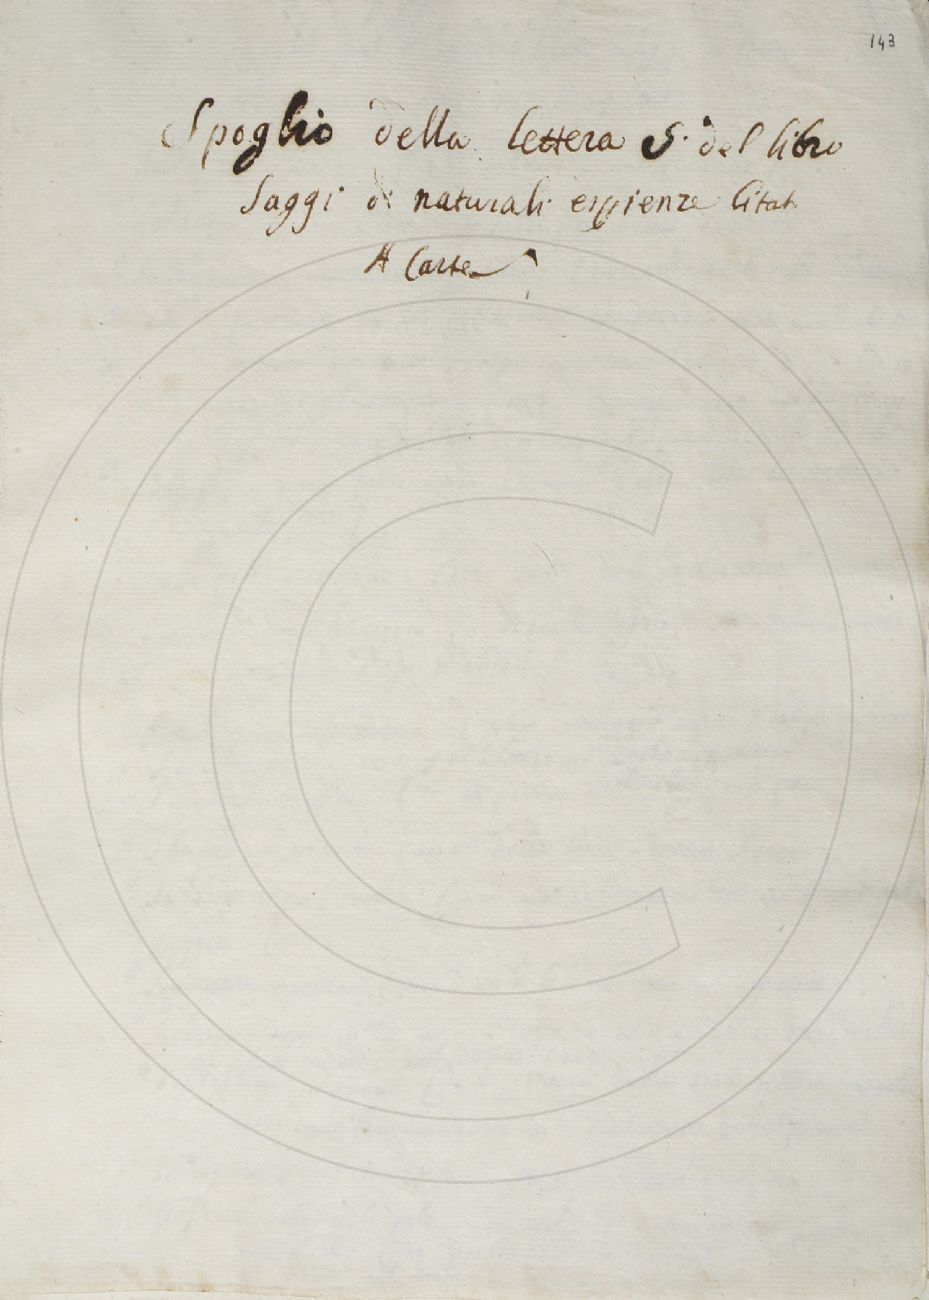 143
Spoglio della lettera S. del libro
Saggi di naturali espienze Citati
A Carte